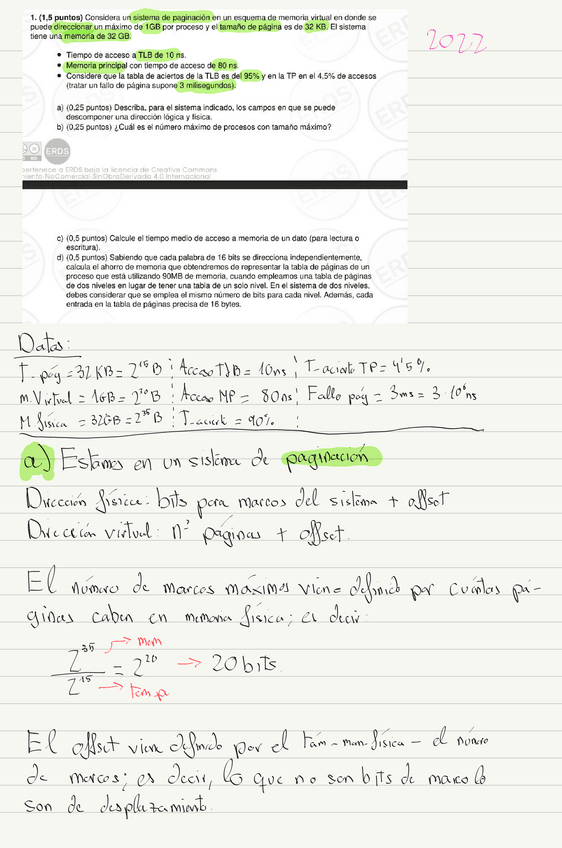 1. (1,5 puntos) Considera un sistema de paginación en un esquema de memoria virtual en donde se
puede direccionar un máximo de 1GB por proceso y el tamaño de página es de 32 KB. El sistema
tiene una memoria de 32 GB.
2022
• Tiempo de acceso a TLB de 10 ns.
• Memoria principal con tiempo de acceso de 80 ns.
• Considere que la tabla de aciertos de la TLB es del 95% y en la TP en el 4,5% de accesos
(tratar un fallo de página supone 3 milisegundos).
a) (0,25 puntos) Describa, para el sistema indicado, los campos en que se puede
descomponer una dirección lógica y física.
b) (0,25 puntos) ¿Cuál es el número máximo de procesos con tamaño máximo?
ERDS
pertenece a ERDS bajo la licencia de Creative Commons
miento-NoComercial-SinObraDerivada 4.0 Internacional
c) (0,5 puntos) Calcule el tiempo medio de acceso a memoria de un dato (para lectura o
escritura).
d) (0,5 puntos) Sabiendo que cada palabra de 16 bits se direcciona independientemente,
calcula el ahorro de memoria que obtendremos de representar la tabla de páginas de un
proceso que está utilizando 90MB de memoria, cuando empleamos una tabla de páginas
de dos niveles en lugar de tener una tabla de un solo nivel. En el sistema de dos niveles,
debes considerar que se emplea el mismo número de bits para cada nivel. Además, cada
entrada en la tabla de páginas precisa de 16 bytes.
Datos:
T. pág = 32 KB = 2¹⁵ B Acceso TLB = 10ns T-acierto TP = 4'5%
M. Virtual = 1GB = 2³⁰ B Acceso MP = 80ns Fallo pág = 3ms = 3·10⁶ns
M física = 32GB = 2³⁵ B T-aciert = 90%
a) Estamos en un sistema de paginación
Dirección física: bits para marcos del sistema + offset
Dirección virtual: nº páginas + offset.
El número de marcos máximos viene definido por cuántas pá-
ginas caben en memoria física; es decir:
2³⁵ → mem
= 2²⁰ → 20 bits.
2¹⁵ → tam. pa
El offset viene definido por el tam-mem.física - el número
de marcos; es decir, lo que no son bits de marco lo
son de desplazamiento.